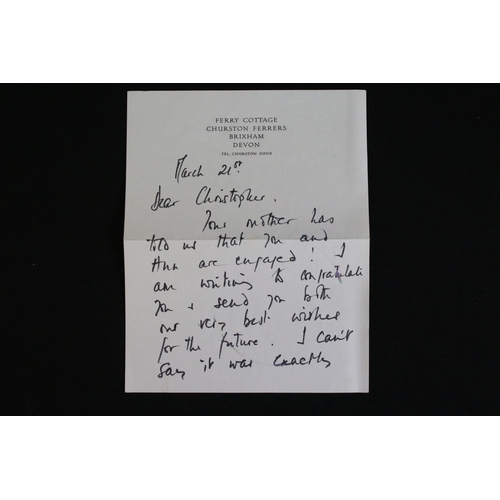 FERRY COTTAGE
CHURSTON FERRERS
BRIXHAM
DEVON
TEL. CHURSTON 2003
March 21st
Dear Christopher.
Your mother has
told us that you and
Ann are engaged! I
am writing to congratulate
you & send you both
our very best wishes
for the future. I can't
say it was exactly